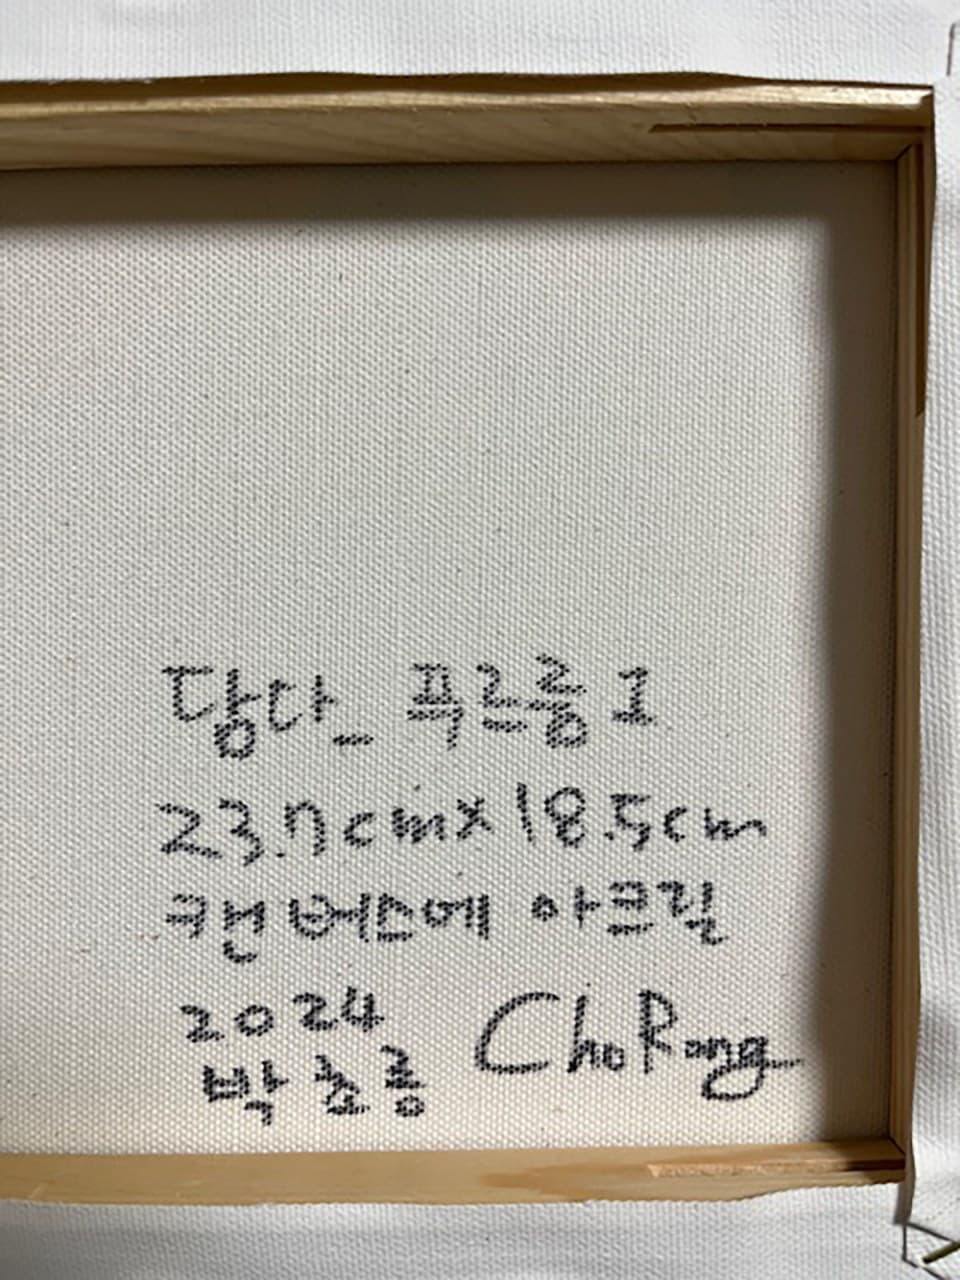 담다_ 푸르름 I
23.7cm x 18.5cm
캔버스에 아크릴
2024
박초롱 ChoRong